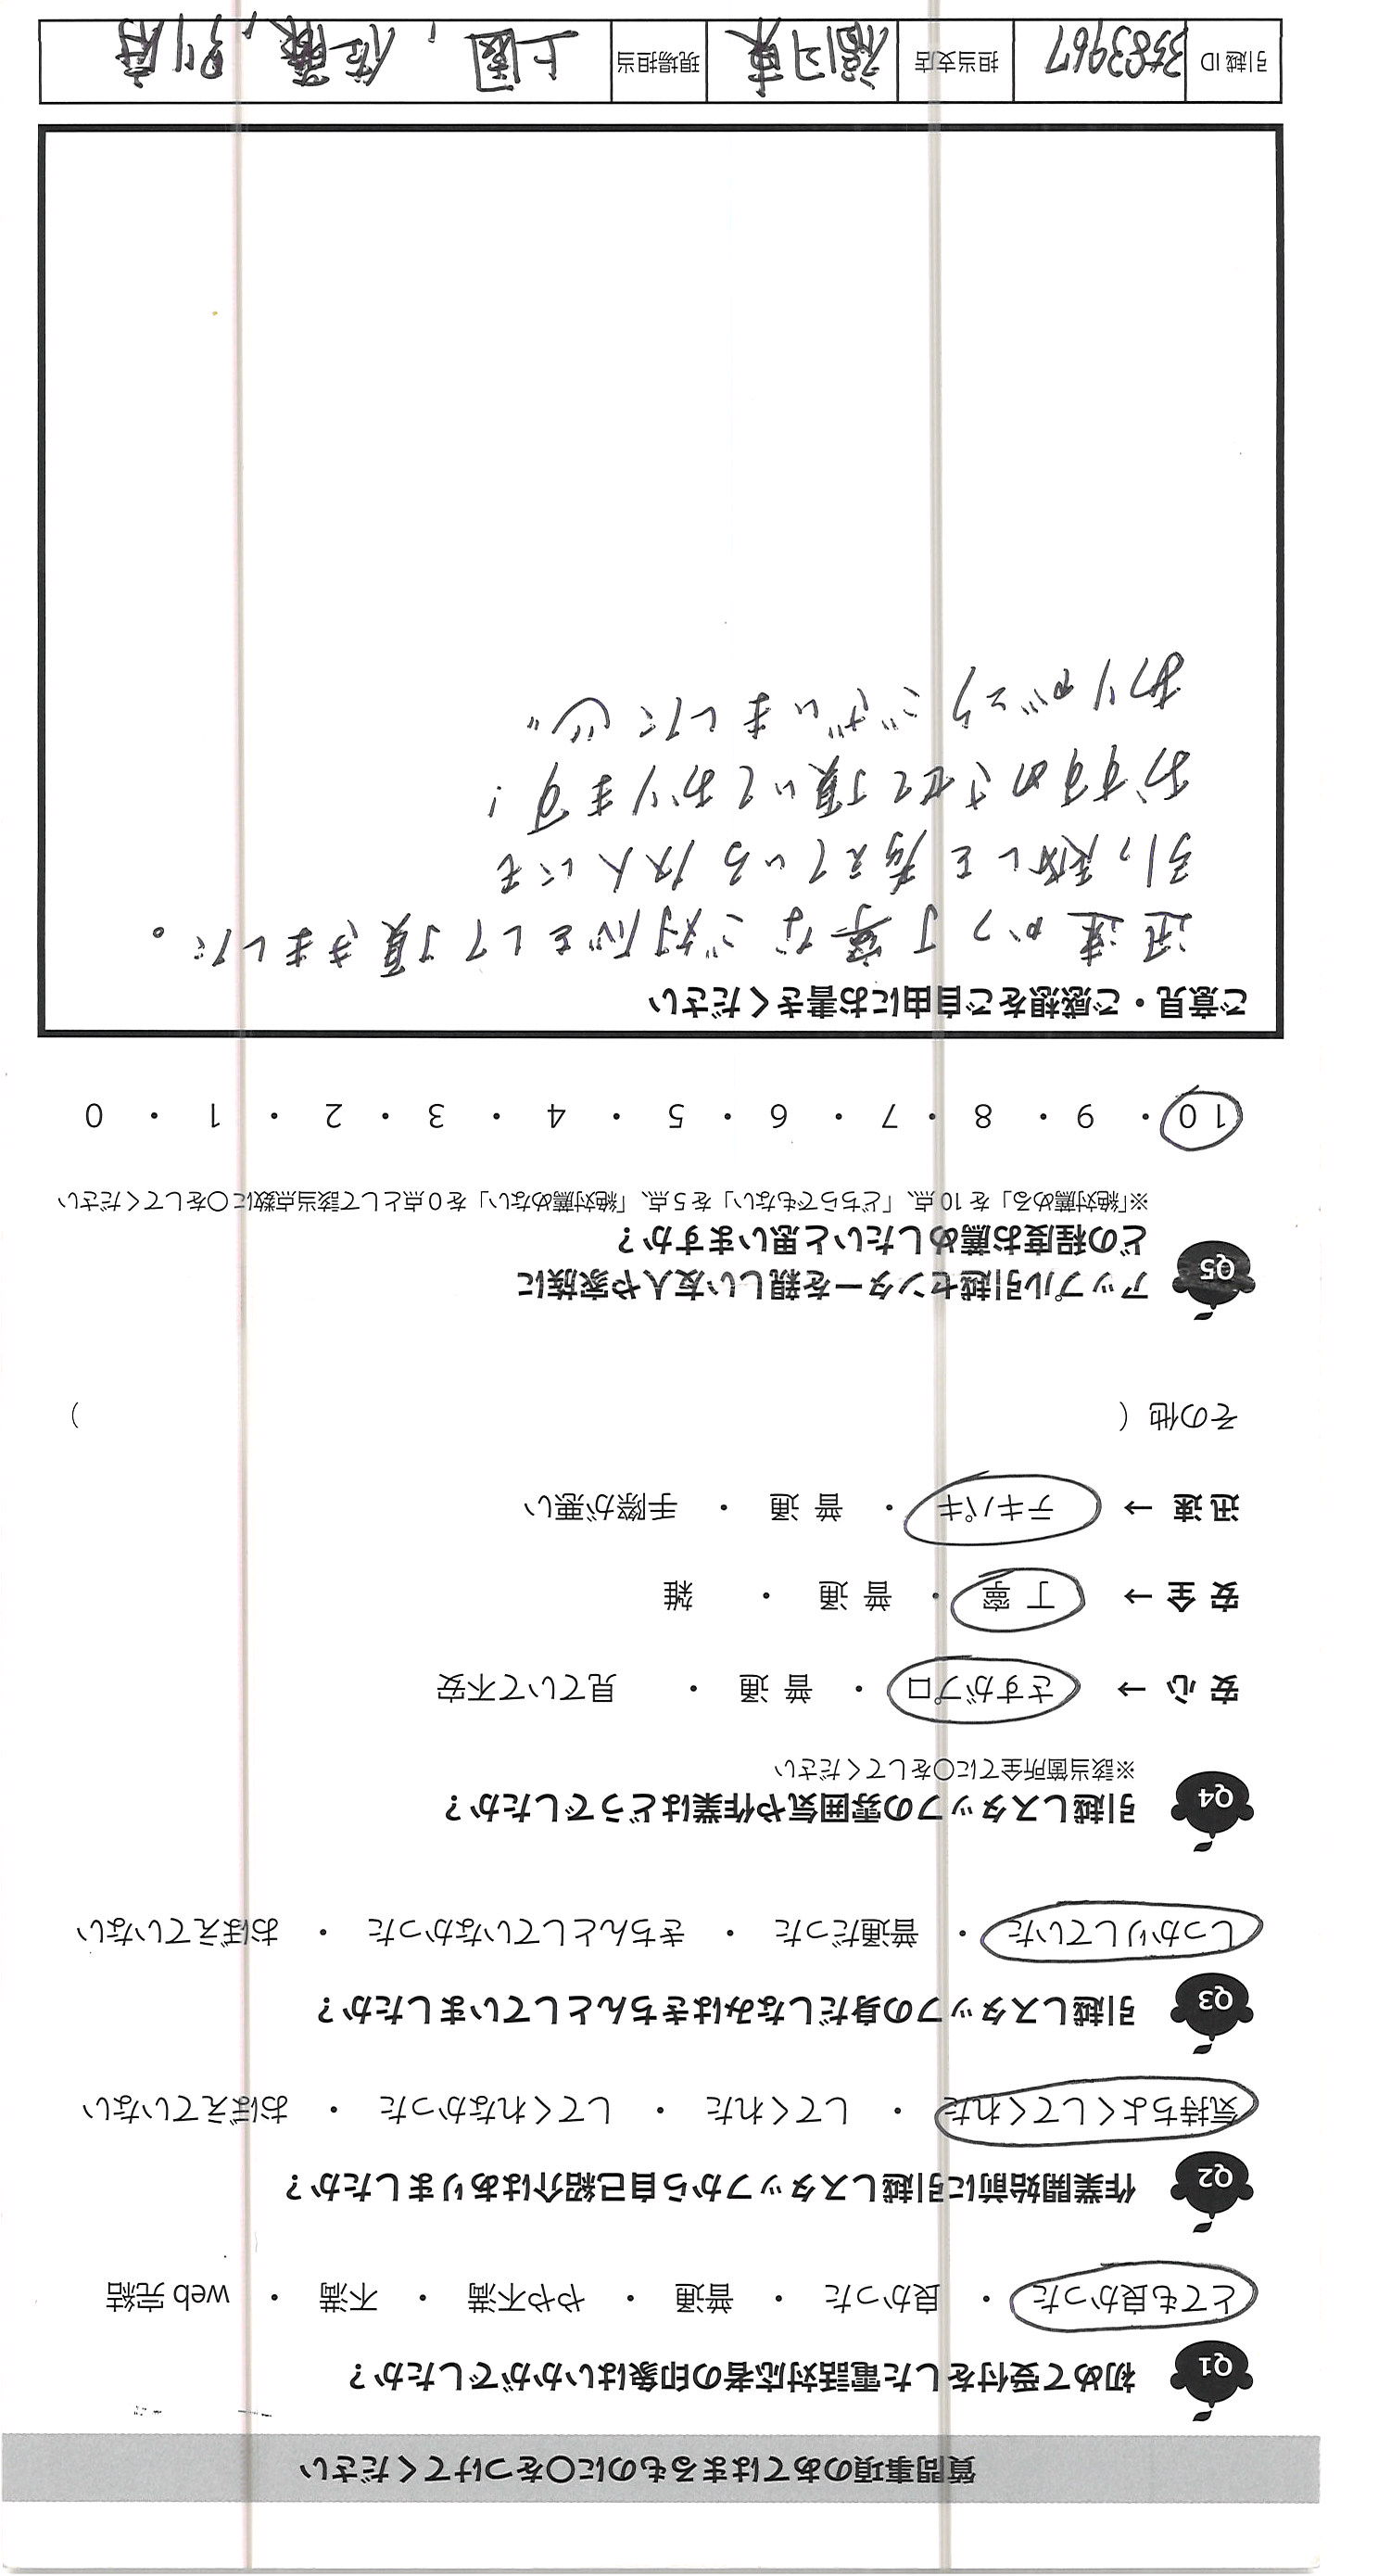 質問事項のあてはまるものに○をつけてください
Q1 初めて受付をした電話対応者の印象はいかがでしたか？
とても良かった ・ 良かった ・ 普通 ・ やや不満 ・ 不満 ・ web 完結
Q2 作業開始前に引越しスタッフから自己紹介はありましたか？
気持ちよくしてくれた ・ してくれた ・ してくれなかった ・ おぼえていない
Q3 引越しスタッフの身だしなみはきちんとしていましたか？
しっかりしていた ・ 普通だった ・ きちんとしていなかった ・ おぼえていない
Q4 引越しスタッフの雰囲気や作業はどうでしたか？
※該当箇所全てに○をしてください
安 心 → さすがプロ ・ 普 通 ・ 見ていて不安
安 全 → 丁 寧 ・ 普 通 ・ 雑
迅 速 → テキパキ ・ 普 通 ・ 手際が悪い
その他（ ）
Q5 アップル引越センターを親しい友人や家族に
どの程度お薦めしたいと思いますか？
※「絶対薦める」を 10 点、「どちらでもない」を 5 点、「絶対薦めない」を 0 点として該当点数に○をしてください
10 ・ 9 ・ 8 ・ 7 ・ 6 ・ 5 ・ 4 ・ 3 ・ 2 ・ 1 ・ 0
ご意見・ご感想をご自由にお書きください
迅速かつ丁寧なご対応をして頂きました。
引っ越しを考えている友人にも
おすすめさせて頂いております！
ありがとうございました
引越 ID 3583967 担当支店 福岡東 現場担当 上園、佐藤、別府